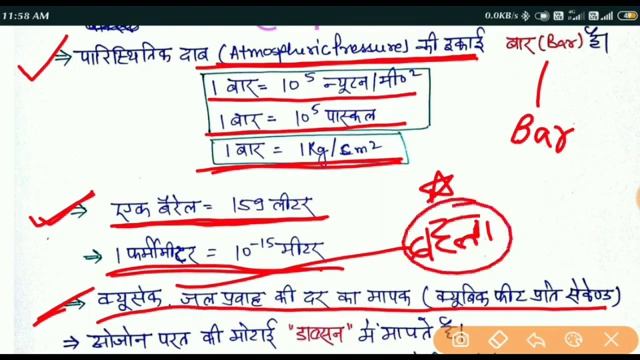 11:58 AM
0.0KB/s
⇒ पारिस्थितिक दाब (Atmosphuric Pressure) की इकाई बार (Bar) है।
1 बार = 10⁵ न्यूटन/मी०²
Bar
1 बार = 10⁵ पास्कल
1 बार = 1Kg/cm²
⇒ एक बैरेल = 159 लीटर
⇒ 1 फर्मीमीटर = 10⁻¹⁵ मीटर
बहना
⇒ क्यूसेक जल प्रवाह की दर का मापक (क्यूबिक फीट प्रति सेकेण्ड)
⇒ ओजोन परत की मोटाई "डाब्सन" में मापते है।